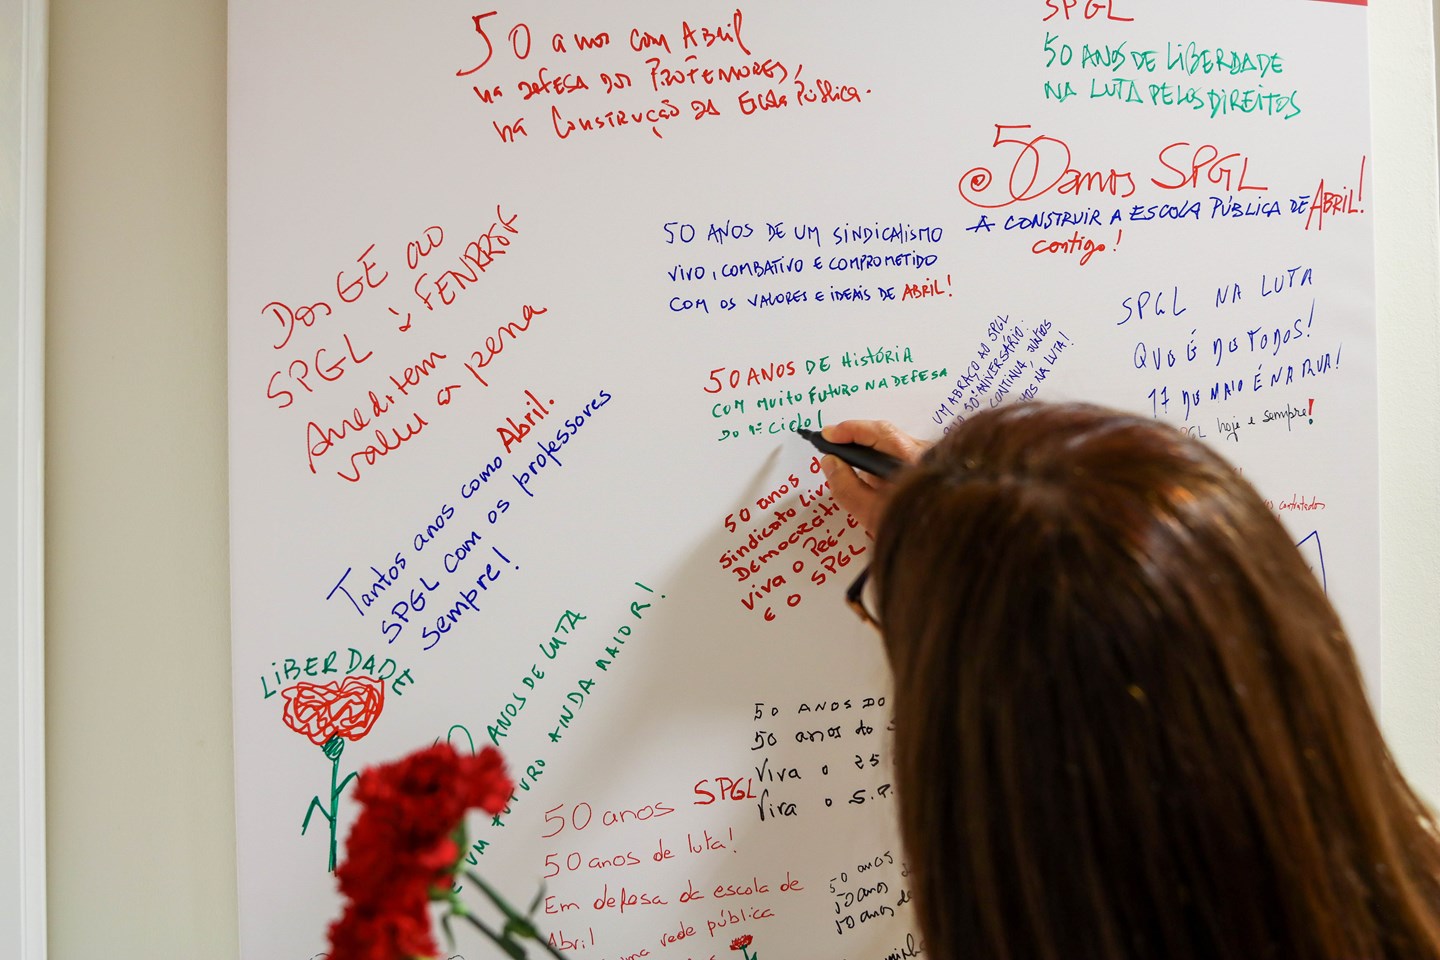 50 anos com Abril
na defesa dos PROFESSORES,
na Construção da Escola Pública.
SPGL
50 ANOS DE LIBERDADE
NA LUTA PELOS DIREITOS
50 anos SPGL
A CONSTRUIR A ESCOLA PÚBLICA DE ABRIL!
contigo!
50 ANOS DE UM SINDICALISMO
VIVO, COMBATIVO E COMPROMETIDO
COM OS VALORES E IDEAIS DE ABRIL!
Dos GE ao
SPGL à FENPROF
Acreditem
valeu a pena
SPGL NA LUTA
QUE É DE TODOS!
17 DE MAIO É NA RUA!
SPGL hoje e sempre!
50 ANOS DE HISTÓRIA
COM MUITO FUTURO NA DEFESA
DO 1º CICLO!
UM ABRAÇO AO SPGL
50º ANIVERSÁRIO.
CONTINUA, JUNTOS
NA LUTA!
Tantos anos como Abril.
SPGL com os professores
sempre!
50 anos d
sindicato Liv
Democráti
viva o Pré-E
e o SPGL!
contratados
LIBERDADE
50 ANOS DE LUTA
E UM FUTURO AINDA MAIOR!
50 ANOS DO
50 anos do S
Viva o 25
Viva o S.P.
50 anos SPGL
50 anos de luta!
Em defesa da escola de
Abril
uma rede pública
50 anos
50 anos d
50 anos de